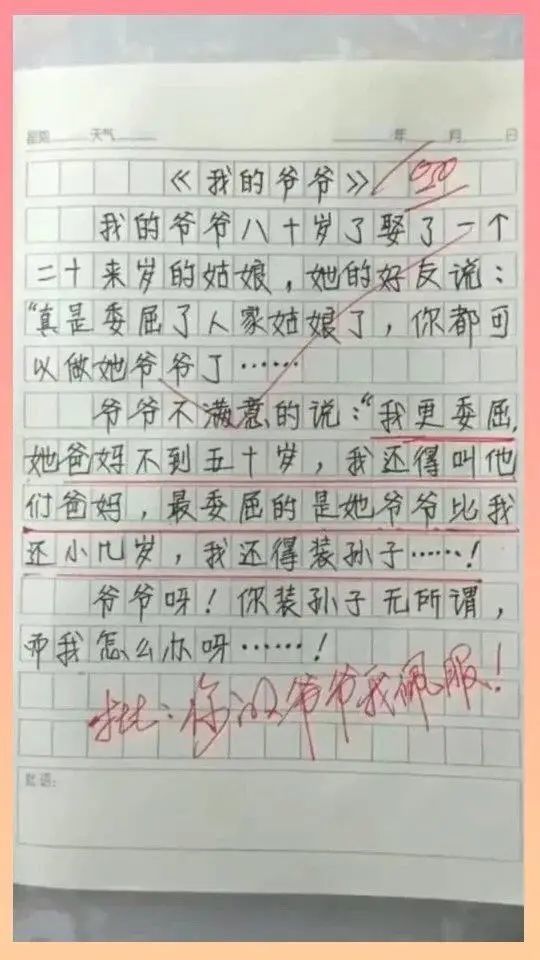 星期 天气 年 月 日
《我的爷爷》
我的爷爷八十岁了娶了一个
二十来岁的姑娘，她的好友说：
“真是委屈了人家姑娘了，你都可
以做她爷爷了……
爷爷不满意的说：“我更委屈，
她爸妈不到五十岁，我还得叫他
们爸妈，最委屈的是她爷爷比我
还小几岁，我还得装孙子……！
爷爷呀！你装孙子无所谓，
而我怎么办呀……！
批：你的爷爷我佩服！
批语：